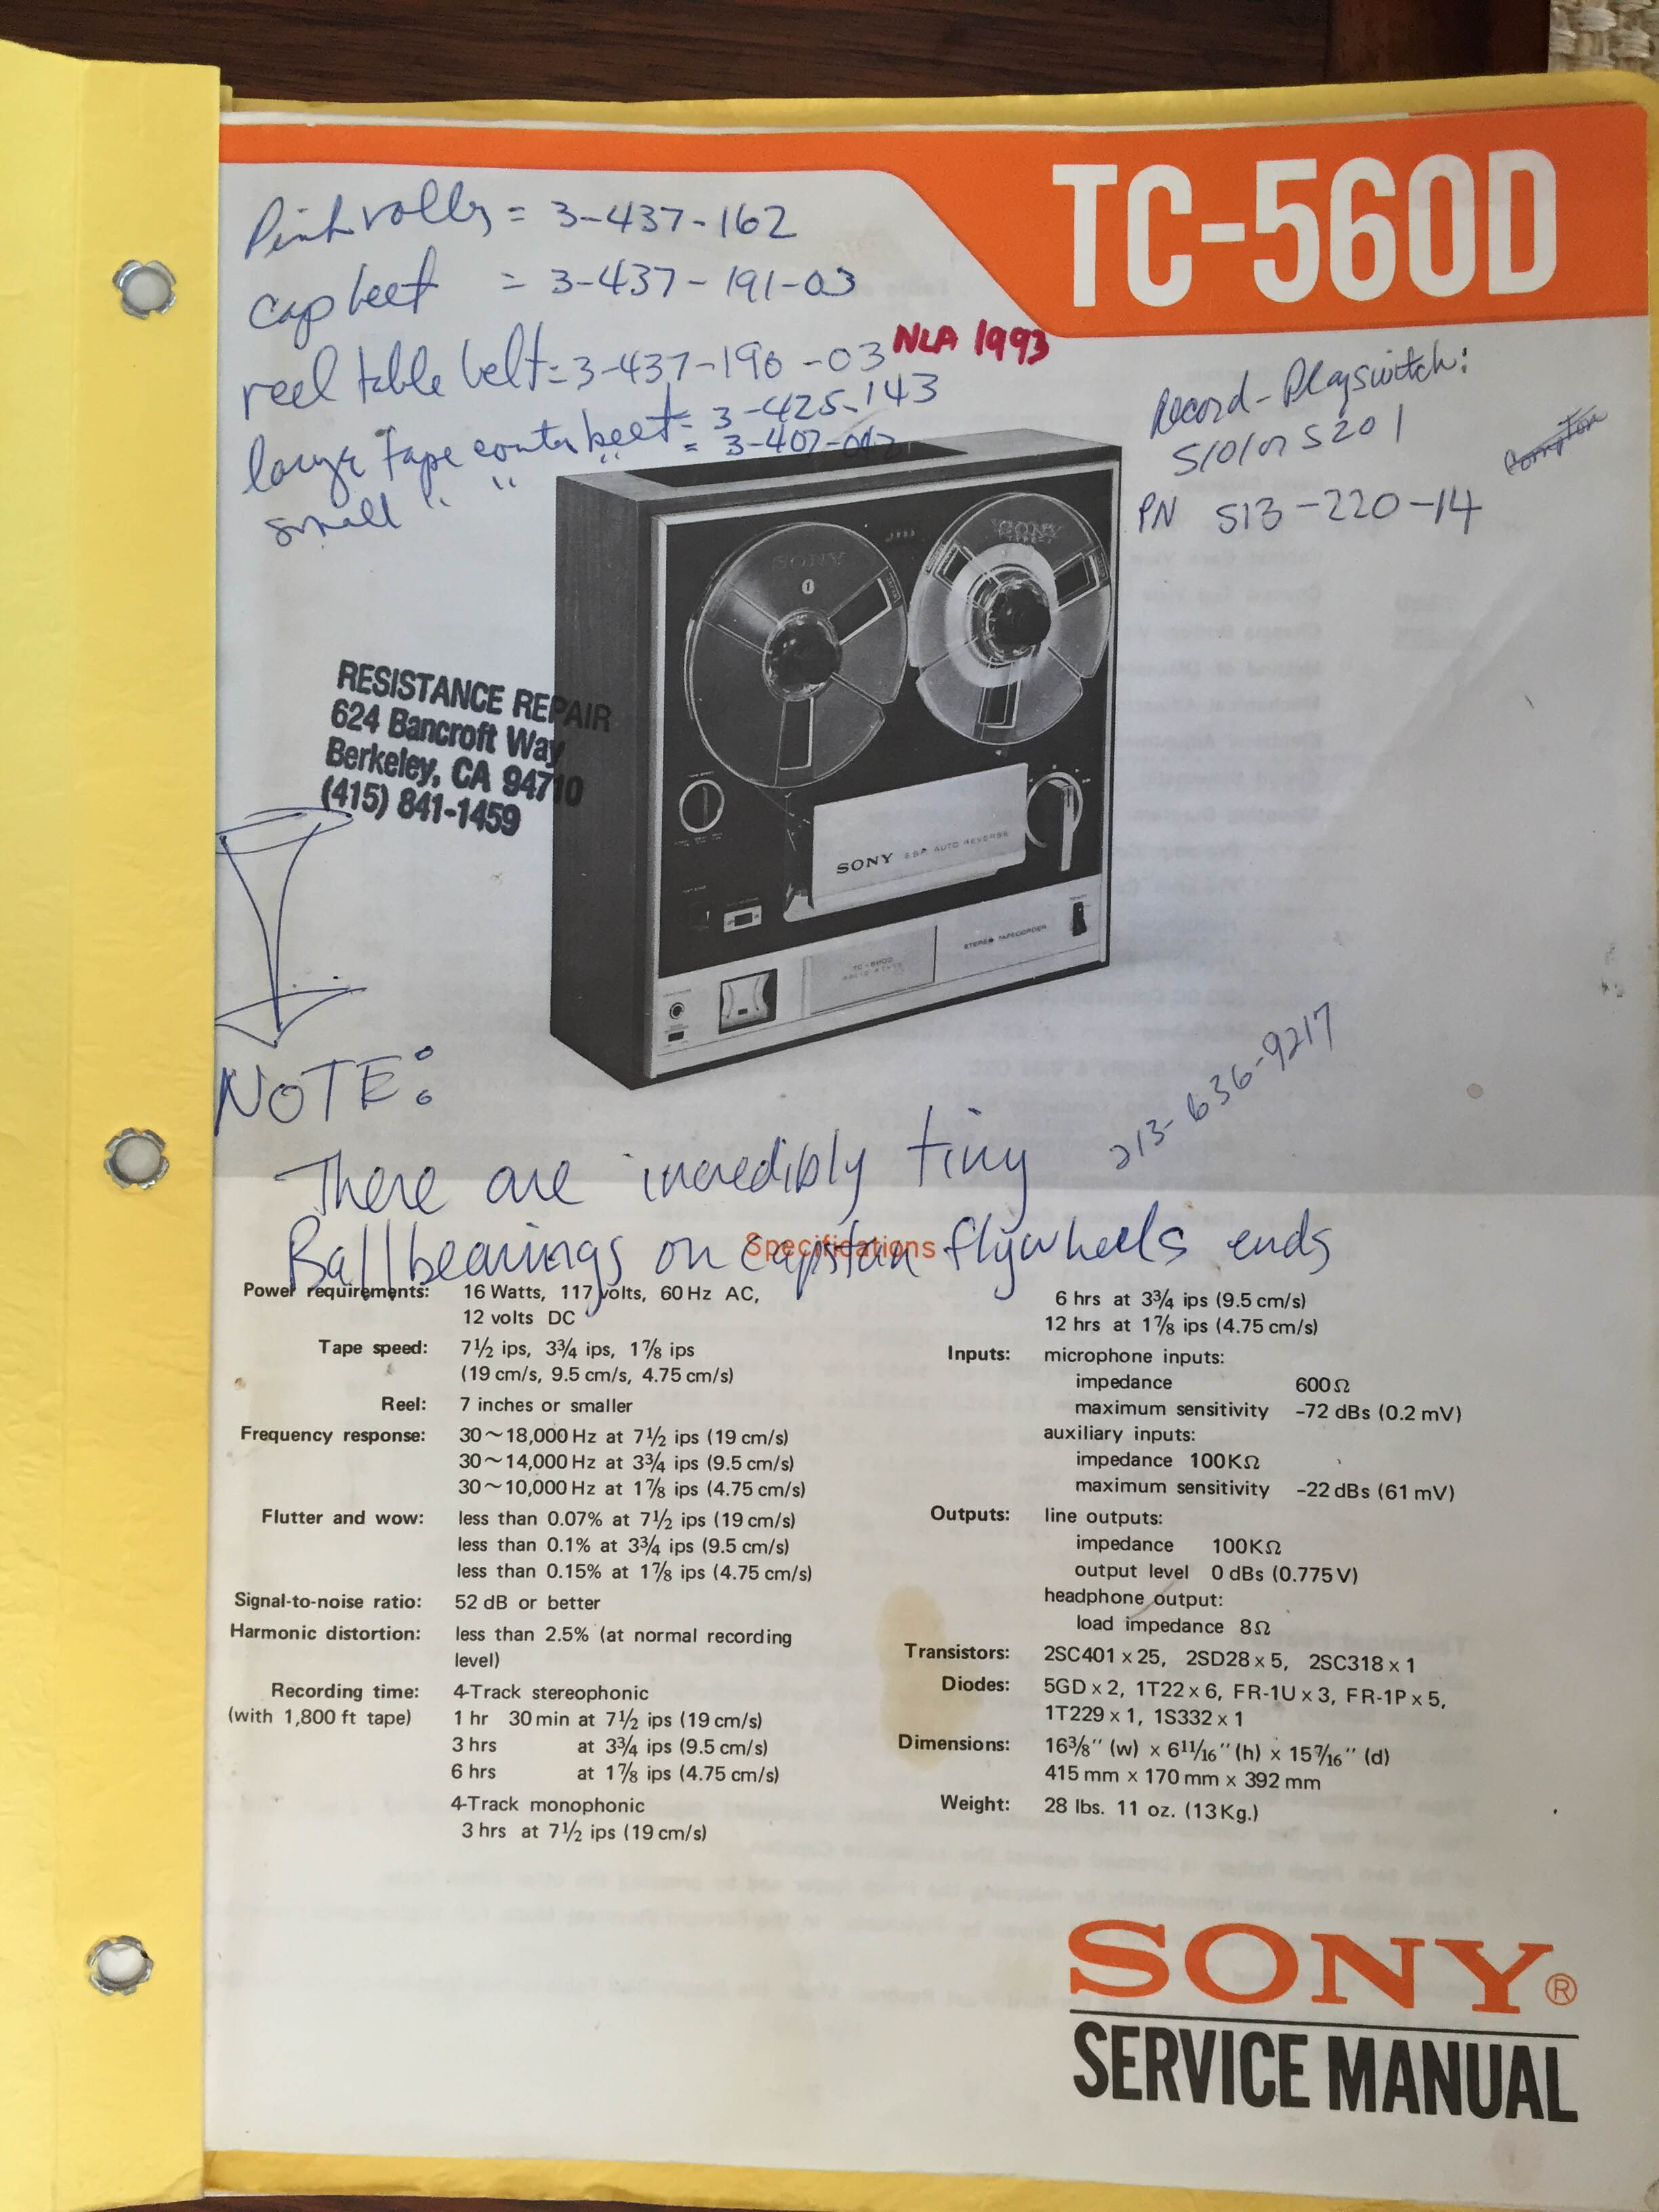 TC-560D
Pinch roller = 3-437-162
cap belt = 3-437-191-03
reel table belt = 3-437-190-03 NLA 1993
large tape counter belt = 3-425-143
small " " = 3-407-042
Record-Play switch:
S201
PN 513-220-14
RESISTANCE REPAIR
624 Bancroft Way
Berkeley, CA 94710
(415) 841-1459
SONY
SONY
SONY ESP AUTO REVERSE
STEREO TAPECORDER
NOTE:
213-636-9217
There are incredibly tiny
Ball bearings on capstan flywheels ends
Specifications
Power requirements: 16 Watts, 117 volts, 60 Hz AC,
12 volts DC
Tape speed: 7½ ips, 3¾ ips, 1⅞ ips
(19 cm/s, 9.5 cm/s, 4.75 cm/s)
Reel: 7 inches or smaller
Frequency response: 30~18,000 Hz at 7½ ips (19 cm/s)
30~14,000 Hz at 3¾ ips (9.5 cm/s)
30~10,000 Hz at 1⅞ ips (4.75 cm/s)
Flutter and wow: less than 0.07% at 7½ ips (19 cm/s)
less than 0.1% at 3¾ ips (9.5 cm/s)
less than 0.15% at 1⅞ ips (4.75 cm/s)
Signal-to-noise ratio: 52 dB or better
Harmonic distortion: less than 2.5% (at normal recording
level)
Recording time: 4-Track stereophonic
(with 1,800 ft tape) 1 hr 30 min at 7½ ips (19 cm/s)
3 hrs at 3¾ ips (9.5 cm/s)
6 hrs at 1⅞ ips (4.75 cm/s)
4-Track monophonic
3 hrs at 7½ ips (19 cm/s)
6 hrs at 3¾ ips (9.5 cm/s)
12 hrs at 1⅞ ips (4.75 cm/s)
Inputs: microphone inputs:
impedance 600Ω
maximum sensitivity -72 dBs (0.2 mV)
auxiliary inputs:
impedance 100KΩ
maximum sensitivity -22 dBs (61 mV)
Outputs: line outputs:
impedance 100KΩ
output level 0 dBs (0.775 V)
headphone output:
load impedance 8Ω
Transistors: 2SC401 x 25, 2SD28 x 5, 2SC318 x 1
Diodes: 5GD x 2, 1T22 x 6, FR-1U x 3, FR-1P x 5,
1T229 x 1, 1S332 x 1
Dimensions: 16⅜" (w) x 6¹¹⁄₁₆" (h) x 15⁷⁄₁₆" (d)
415 mm x 170 mm x 392 mm
Weight: 28 lbs. 11 oz. (13 Kg.)
SONY®
SERVICE MANUAL